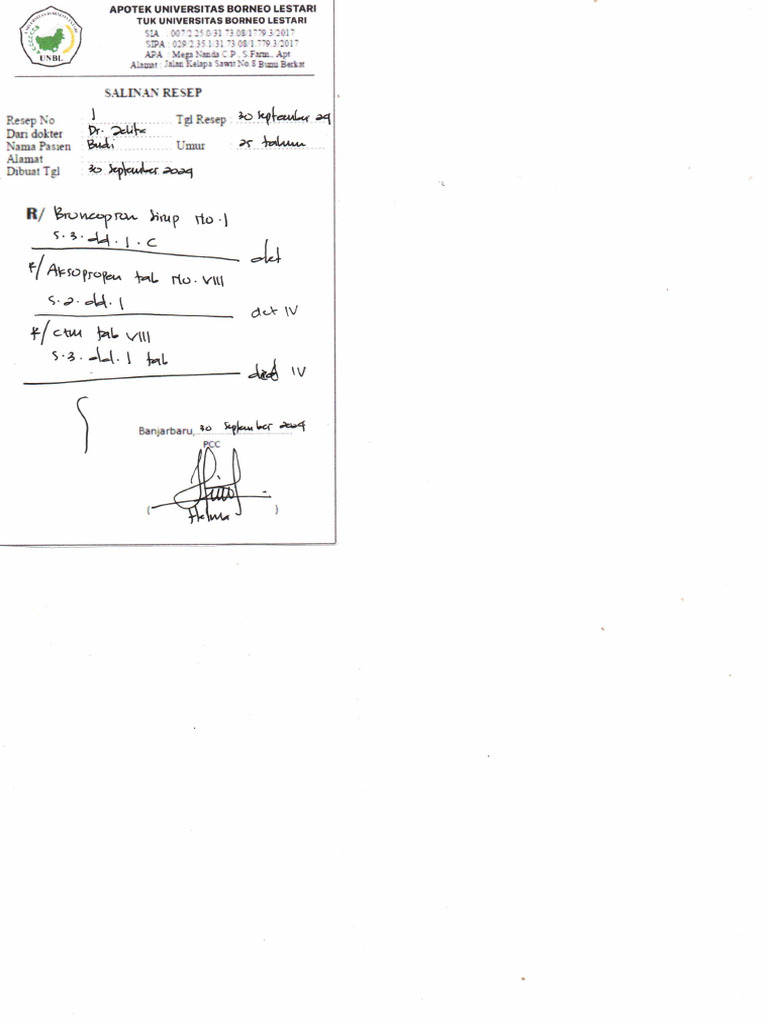 APOTEK UNIVERSITAS BORNEO LESTARI
TUK UNIVERSITAS BORNEO LESTARI
SIA : 007/2.25.0/31.73.08/1.779.3/2017
SIPA : 029/2.35.1/31.73.08/1.779.3/2017
APA : Mega Nanda C.P., S.Farm., Apt
Alamat : Jalan Kelapa Sawit No.8 Bumi Berkat
UNBL
SALINAN RESEP
Resep No : 1 Tgl Resep : 30 September 24
Dari dokter : Dr. Zelita
Nama Pasien : Budi Umur : 25 tahun
Alamat :
Dibuat Tgl : 30 September 2024
R/ Broncopron Sirup No. 1
S. 3. dd. 1. C
det
R/ Aksopropen tab No. VIII
S. 2. dd. 1
det IV
R/ CTM tab VIII
S. 3. dd. 1 tab
IV
Banjarbaru, 30 September 2024
PCC
( Helma )